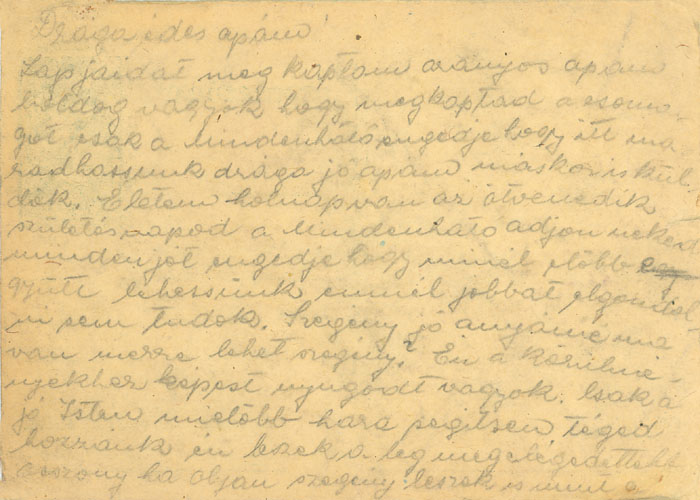 Drága édes apám!
Lapjaidat meg kaptam aranyos apám
boldog vagyok hogy megkaptad a csoma-
got csak a Mindenható engedje hogy itt ma
radhassunk drága jó apám máskor is kül
dök. Életem holnap van az ötvenedik
születésnapod a Mindenható adjon neked
minden jót engedje hogy minél előbb
együtt lehessünk ennél jobbat elgondol
ni sem tudok. Szegény jó anyámé ma
van merre lehet szegény? Én a körülmé-
nyekhez képest nyugodt vagyok. Csak a
jó Isten mielőbb haza segítsen téged
hozzánk én leszek a leg meg elégedettebb
asszony ha olyan szegény leszek is mint a